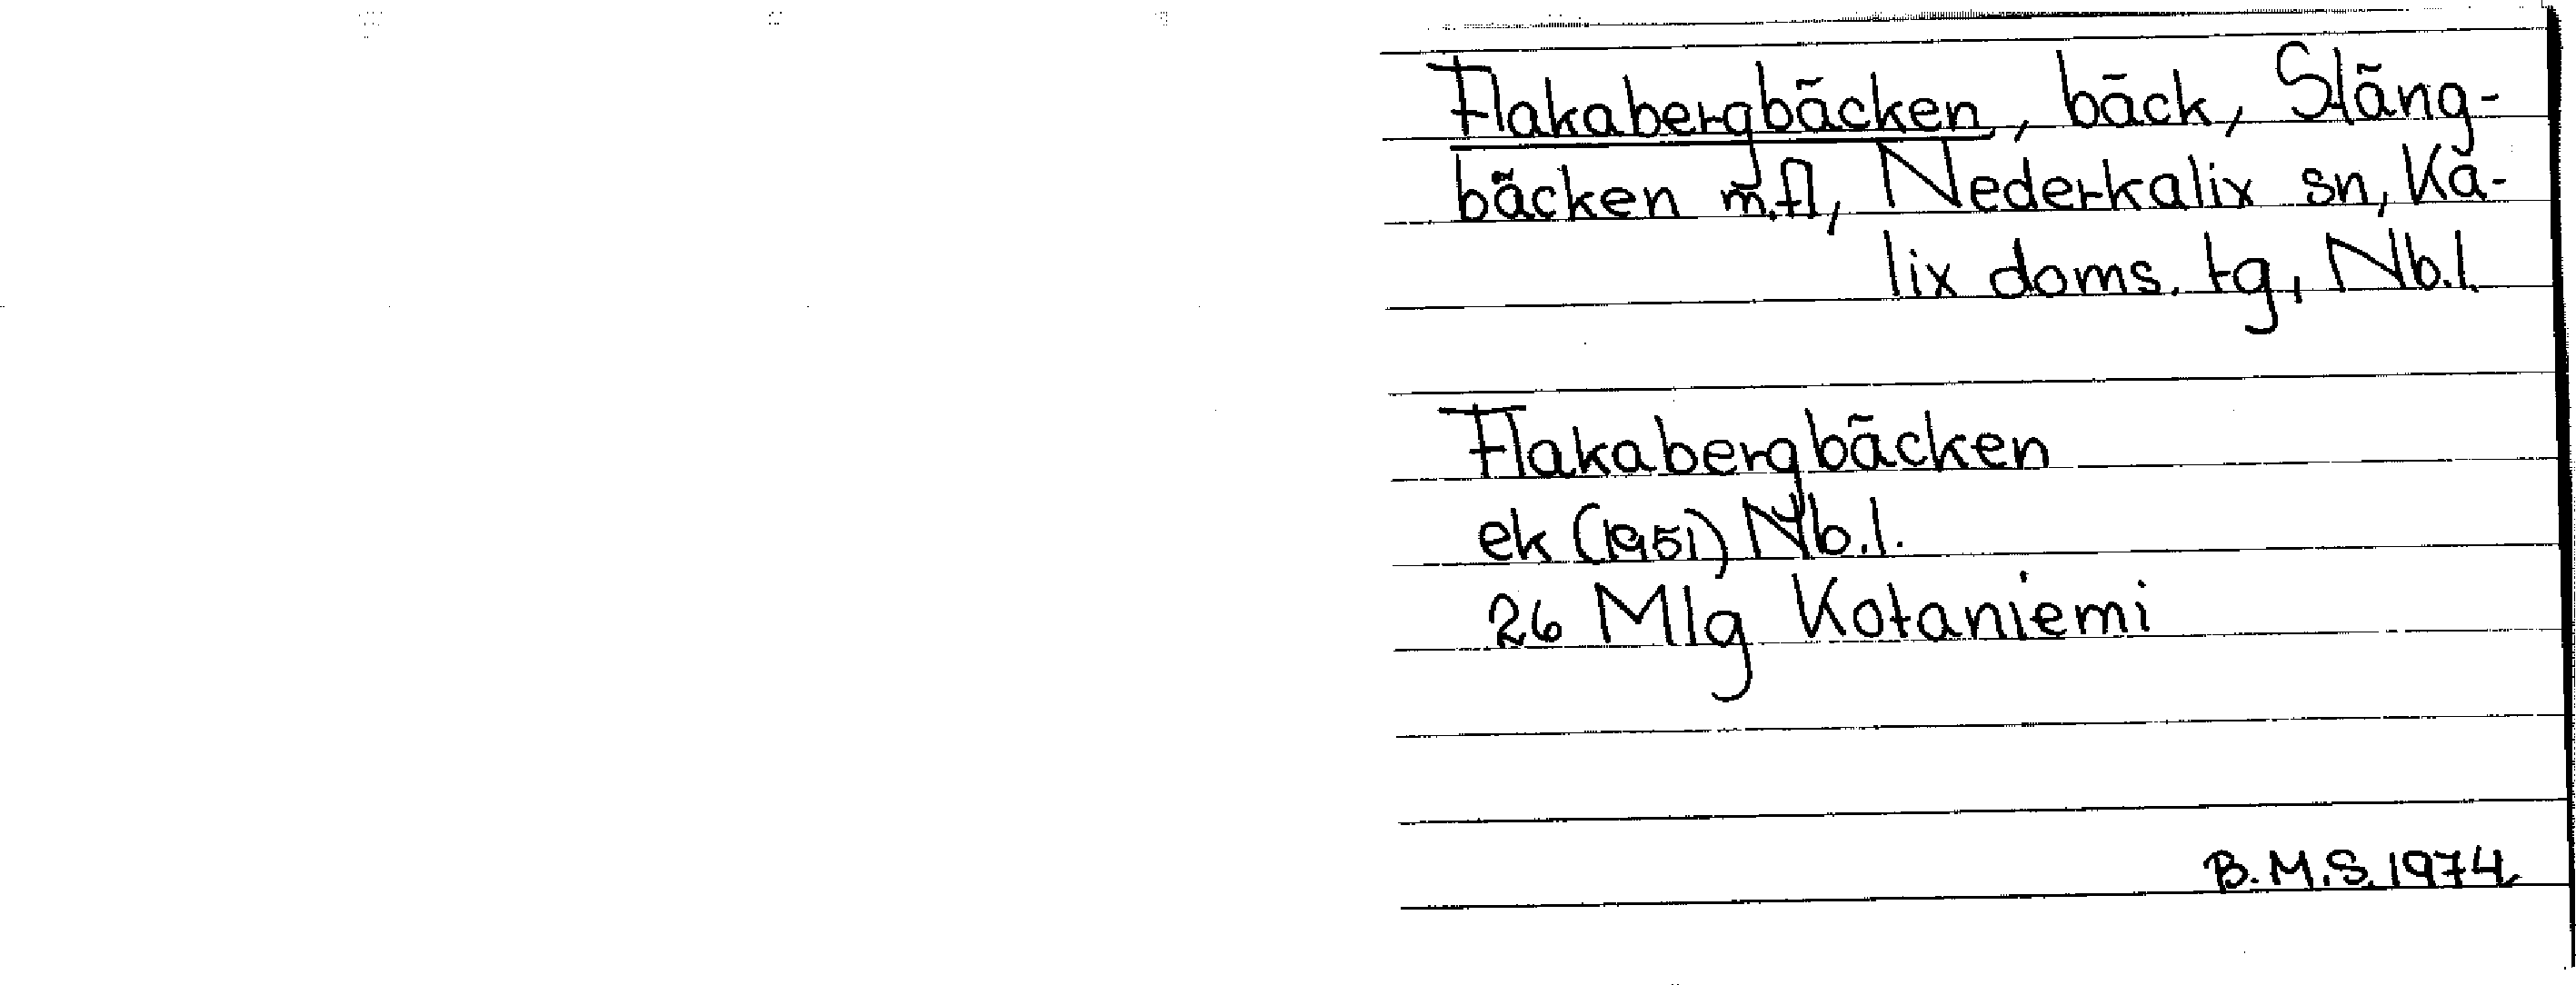 Flakabergbäcken, bäck, Släng-
bäcken m.fl, Nederkalix sn, Ka-
lix doms. tg, Nb.l.
Flakabergbäcken
ek (1951) Nb.l.
26 Mlg Kotaniemi
B.M.S. 1974